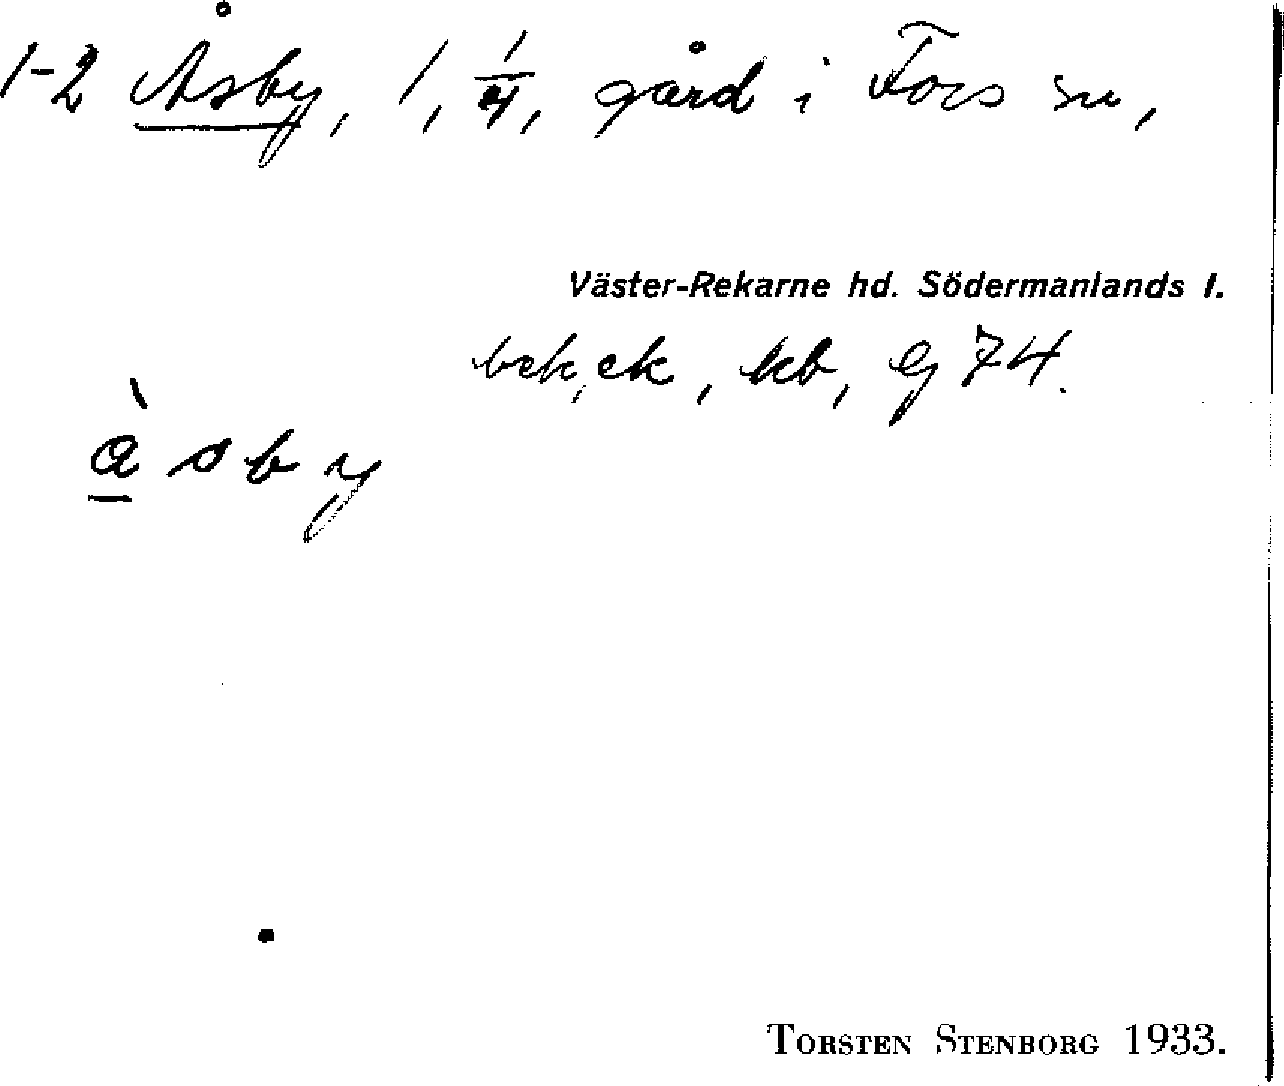 1-2 Åsby, 1, 1/4, gård i Fors sn,
Väster-Rekarne hd. Södermanlands l.
bek, ek, kb, G 74.
àsby
TORSTEN STENBORG 1933.